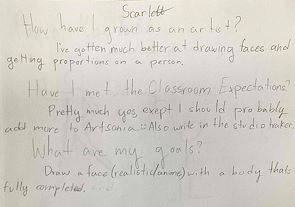 Scarlett
How have I grown as an artist?
I've gotten much better at drawing faces and
getting proportions on a person.
Have I met the Classroom Expectations?
Pretty much yes, exept I should probably
add more to Artsonia. Also write in the studio tracker.
What are my goals?
Draw a face (realistic/anime) with a body thats
fully completed.